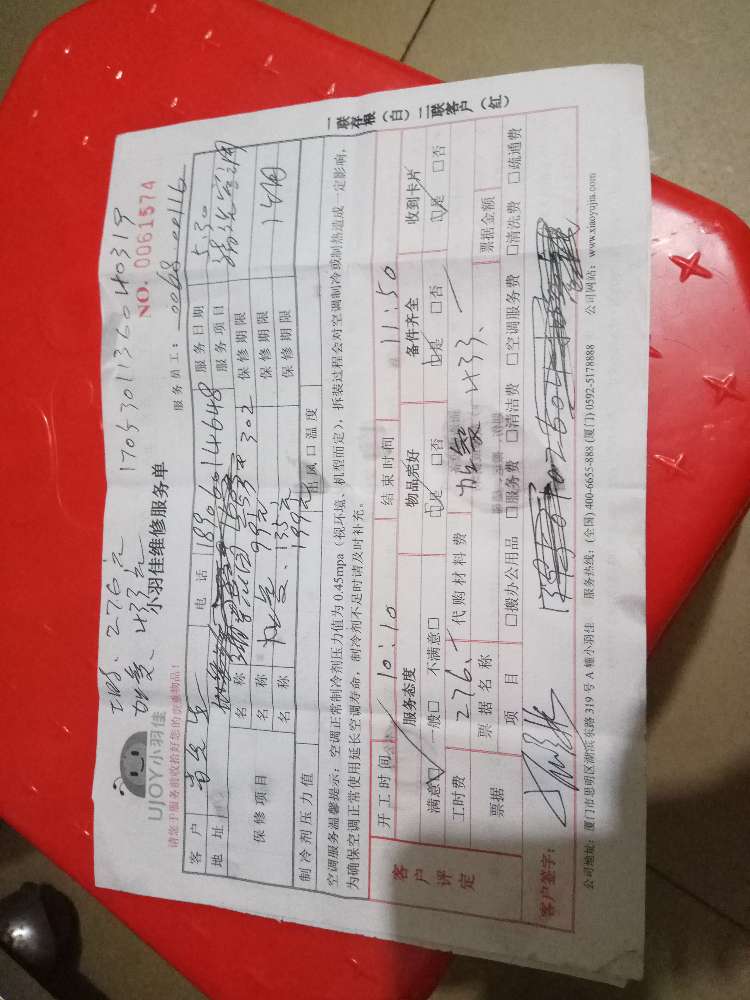 工时、276元 170530113604 0319
加氟、433元
小羽佳维修服务单 NO. 0061574
UJOY小羽佳
请您于服务前收拾好您的贵重物品!
服务员工: 0068 00116
客户 电话 18906014648 服务日期 5.30
地址 服务项目
保修项目 名称 保修期限
名称 加氟、99元 保修期限
名称 135元 保修期限
制冷剂压力值 199元 出风口温度
空调服务温馨提示:空调正常制冷剂压力值为0.45mpa(视环境、机型而定),拆装过程会对空调制冷或制热造成一定影响,
为确保空调正常使用延长空调寿命,制冷剂不足时请及时补充。
一联存根(白)二联客户(红)
客户评定
开工时间 10:10 结束时间 11:50
服务态度 物品完好 备件齐全 收到卡片
满意□ 一般□ 不满意□ □是 □否 □是 □否 □是 □否
工时费 276、 代购材料费 433、
票据 票据名称 票据金额
项目 □搬办公用品 □服务费 □清洁费 □空调服务费 □清洗费 □疏通费
客户签字:
公司地址:厦门市思明区湖滨东路319号A幢小羽佳 服务热线:(全国)400-6655-888 (厦门)0592-5178888 公司网站:www.xiaoyujia.com